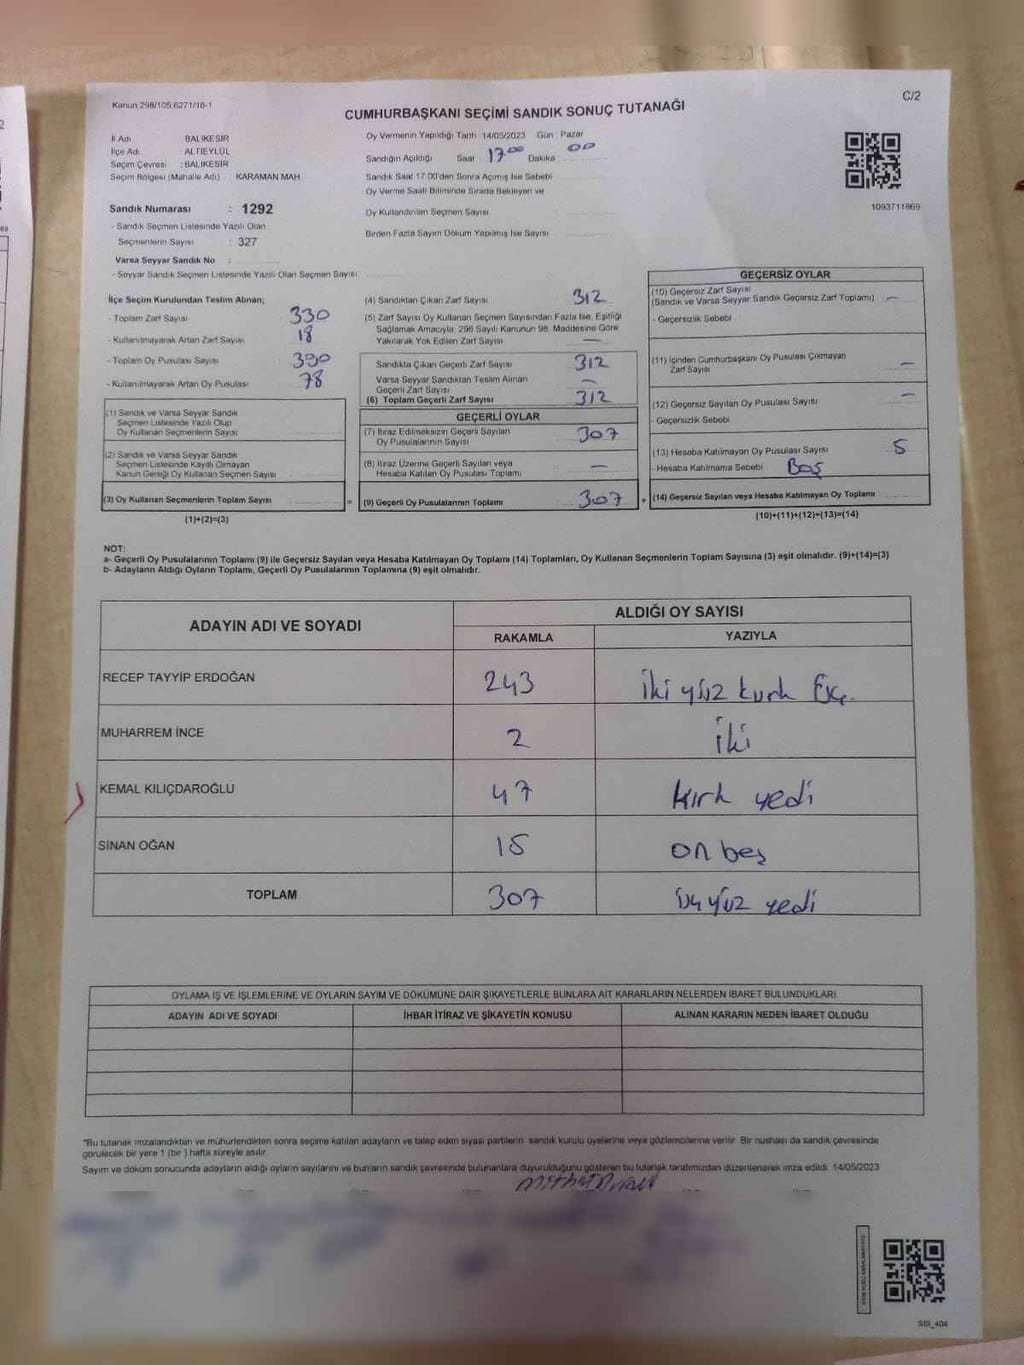 C/2
Kanun 298/105,6271/16-1
CUMHURBAŞKANI SEÇİMİ SANDIK SONUÇ TUTANAĞI
İl Adı BALIKESİR
İlçe Adı ALTIEYLÜL
Seçim Çevresi : BALIKESİR
Seçim Bölgesi (Mahalle Adı) KARAMAN MAH.
Oy Vermenin Yapıldığı Tarih 14/05/2023 Gün : Pazar
Sandığın Açıldığı Saat 17 00 Dakika 00
Sandık Saat 17:00'den Sonra Açımış İse Sebebi
Oy Verme Saati Bitiminde Sırada Bekleyen ve
Oy Kullandırılan Seçmen Sayısı
Birden Fazla Sayım Döküm Yapılmış İse Sayısı
1093711869
Sandık Numarası : 1292
- Sandık Seçmen Listesinde Yazılı Olan
Seçmenlerin Sayısı : 327
Varsa Seyyar Sandık No :
- Seyyar Sandık Seçmen Listesinde Yazılı Olan Seçmen Sayısı
İlçe Seçim Kurulundan Teslim Alınan;
- Toplam Zarf Sayısı 330
- Kullanılmayarak Artan Zarf Sayısı 18
- Toplam Oy Pusulası Sayısı 390
- Kullanılmayarak Artan Oy Pusulası 78
(1) Sandık ve Varsa Seyyar Sandık
Seçmen Listesinde Yazılı Olup
Oy Kullanan Seçmenlerin Sayısı
(2) Sandık ve Varsa Seyyar Sandık
Seçmen Listesinde Kayıtlı Olmayan
Kanun Gereği Oy Kullanan Seçmen Sayısı
(3) Oy Kullanan Seçmenlerin Toplam Sayısı =
(1)+(2)=(3)
(4) Sandıktan Çıkan Zarf Sayısı 312
(5) Zarf Sayısı Oy Kullanan Seçmen Sayısından Fazla İse, Eşitliği
Sağlamak Amacıyla; 298 Sayılı Kanunun 98. Maddesine Göre
Yakılarak Yok Edilen Zarf Sayısı —
Sandıkta Çıkan Geçerli Zarf Sayısı 312
Varsa Seyyar Sandıktan Teslim Alınan
Geçerli Zarf Sayısı —
(6) Toplam Geçerli Zarf Sayısı 312
GEÇERLİ OYLAR
(7) İtiraz Edilmeksizin Geçerli Sayılan
Oy Pusulalarının Sayısı 307
(8) İtiraz Üzerine Geçerli Sayılan veya
Hesaba Katılan Oy Pusulası Toplamı —
(9) Geçerli Oy Pusulalarının Toplamı 307 +
GEÇERSİZ OYLAR
(10) Geçersiz Zarf Sayısı
(Sandık ve Varsa Seyyar Sandık Geçersiz Zarf Toplamı) —
- Geçersizlik Sebebi
(11) İçinden Cumhurbaşkanı Oy Pusulası Çıkmayan
Zarf Sayısı —
(12) Geçersiz Sayılan Oy Pusulası Sayısı —
- Geçersizlik Sebebi
(13) Hesaba Katılmayan Oy Pusulası Sayısı 5
- Hesaba Katılmama Sebebi Boş
(14) Geçersiz Sayılan veya Hesaba Katılmayan Oy Toplamı
(10)+(11)+(12)+(13)=(14)
NOT:
a- Geçerli Oy Pusulalarının Toplamı (9) ile Geçersiz Sayılan veya Hesaba Katılmayan Oy Toplamı (14) Toplamları, Oy Kullanan Seçmenlerin Toplam Sayısına (3) eşit olmalıdır. (9)+(14)=(3)
b- Adayların Aldığı Oyların Toplamı, Geçerli Oy Pusulalarının Toplamına (9) eşit olmalıdır.
ADAYIN ADI VE SOYADI
ALDIĞI OY SAYISI
RAKAMLA YAZIYLA
RECEP TAYYİP ERDOĞAN 243 iki yüz kırk üç
MUHARREM İNCE 2 iki
KEMAL KILIÇDAROĞLU 47 kırk yedi
SİNAN OĞAN 15 on beş
TOPLAM 307 üçyüz yedi
OYLAMA İŞ VE İŞLEMLERİNE VE OYLARIN SAYIM VE DÖKÜMÜNE DAİR ŞİKAYETLERLE BUNLARA AİT KARARLARIN NELERDEN İBARET BULUNDUKLARI
ADAYIN ADI VE SOYADI İHBAR İTİRAZ VE ŞİKAYETİN KONUSU ALINAN KARARIN NEDEN İBARET OLDUĞU
*Bu tutanak imzalandıktan ve mühürlendikten sonra seçime katılan adayların ve talep eden siyasi partilerin sandık kurulu üyelerine veya gözlemcilerine verilir. Bir nüshası da sandık çevresinde
görülecek bir yere 1 (bir) hafta süreyle asılır.
Sayım ve döküm sonucunda adayların aldığı oyların sayılarını ve bunların sandık çevresinde bulunanlara duyurulduğunu gösteren bu tutanak tarafımızdan düzenlenerek imza edildi. 14/05/2023
SSI_404